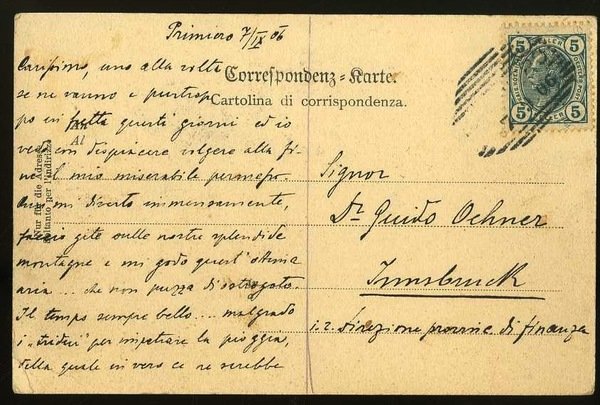 Primiero 7/IX 06
Correspondenz-Karte.
Cartolina di corrispondenza.
5 5
5 5
HELLER
An
Al
Nur für die Adresse
Soltanto per l'indirizzo
Carissimo, uno alla volta
se ne vanno e purtrop
po in fretta questi giorni ed io
vedo con dispiacere volgere alla fi-
ne il mio miserabile permesso.
Qui mi diverto immensamente,
faccio gite sulle nostre splendide
montagne e mi godo quest'ottima
aria ... che non puzza di
Il tempo sempre bello .... malgrado
i „tridui" per impetrare la pioggia,
della quale in vero ce ne sarebbe
Signor
Dr Guido Ochner
Innsbruck
i. r. Direzione provinc. di finanza